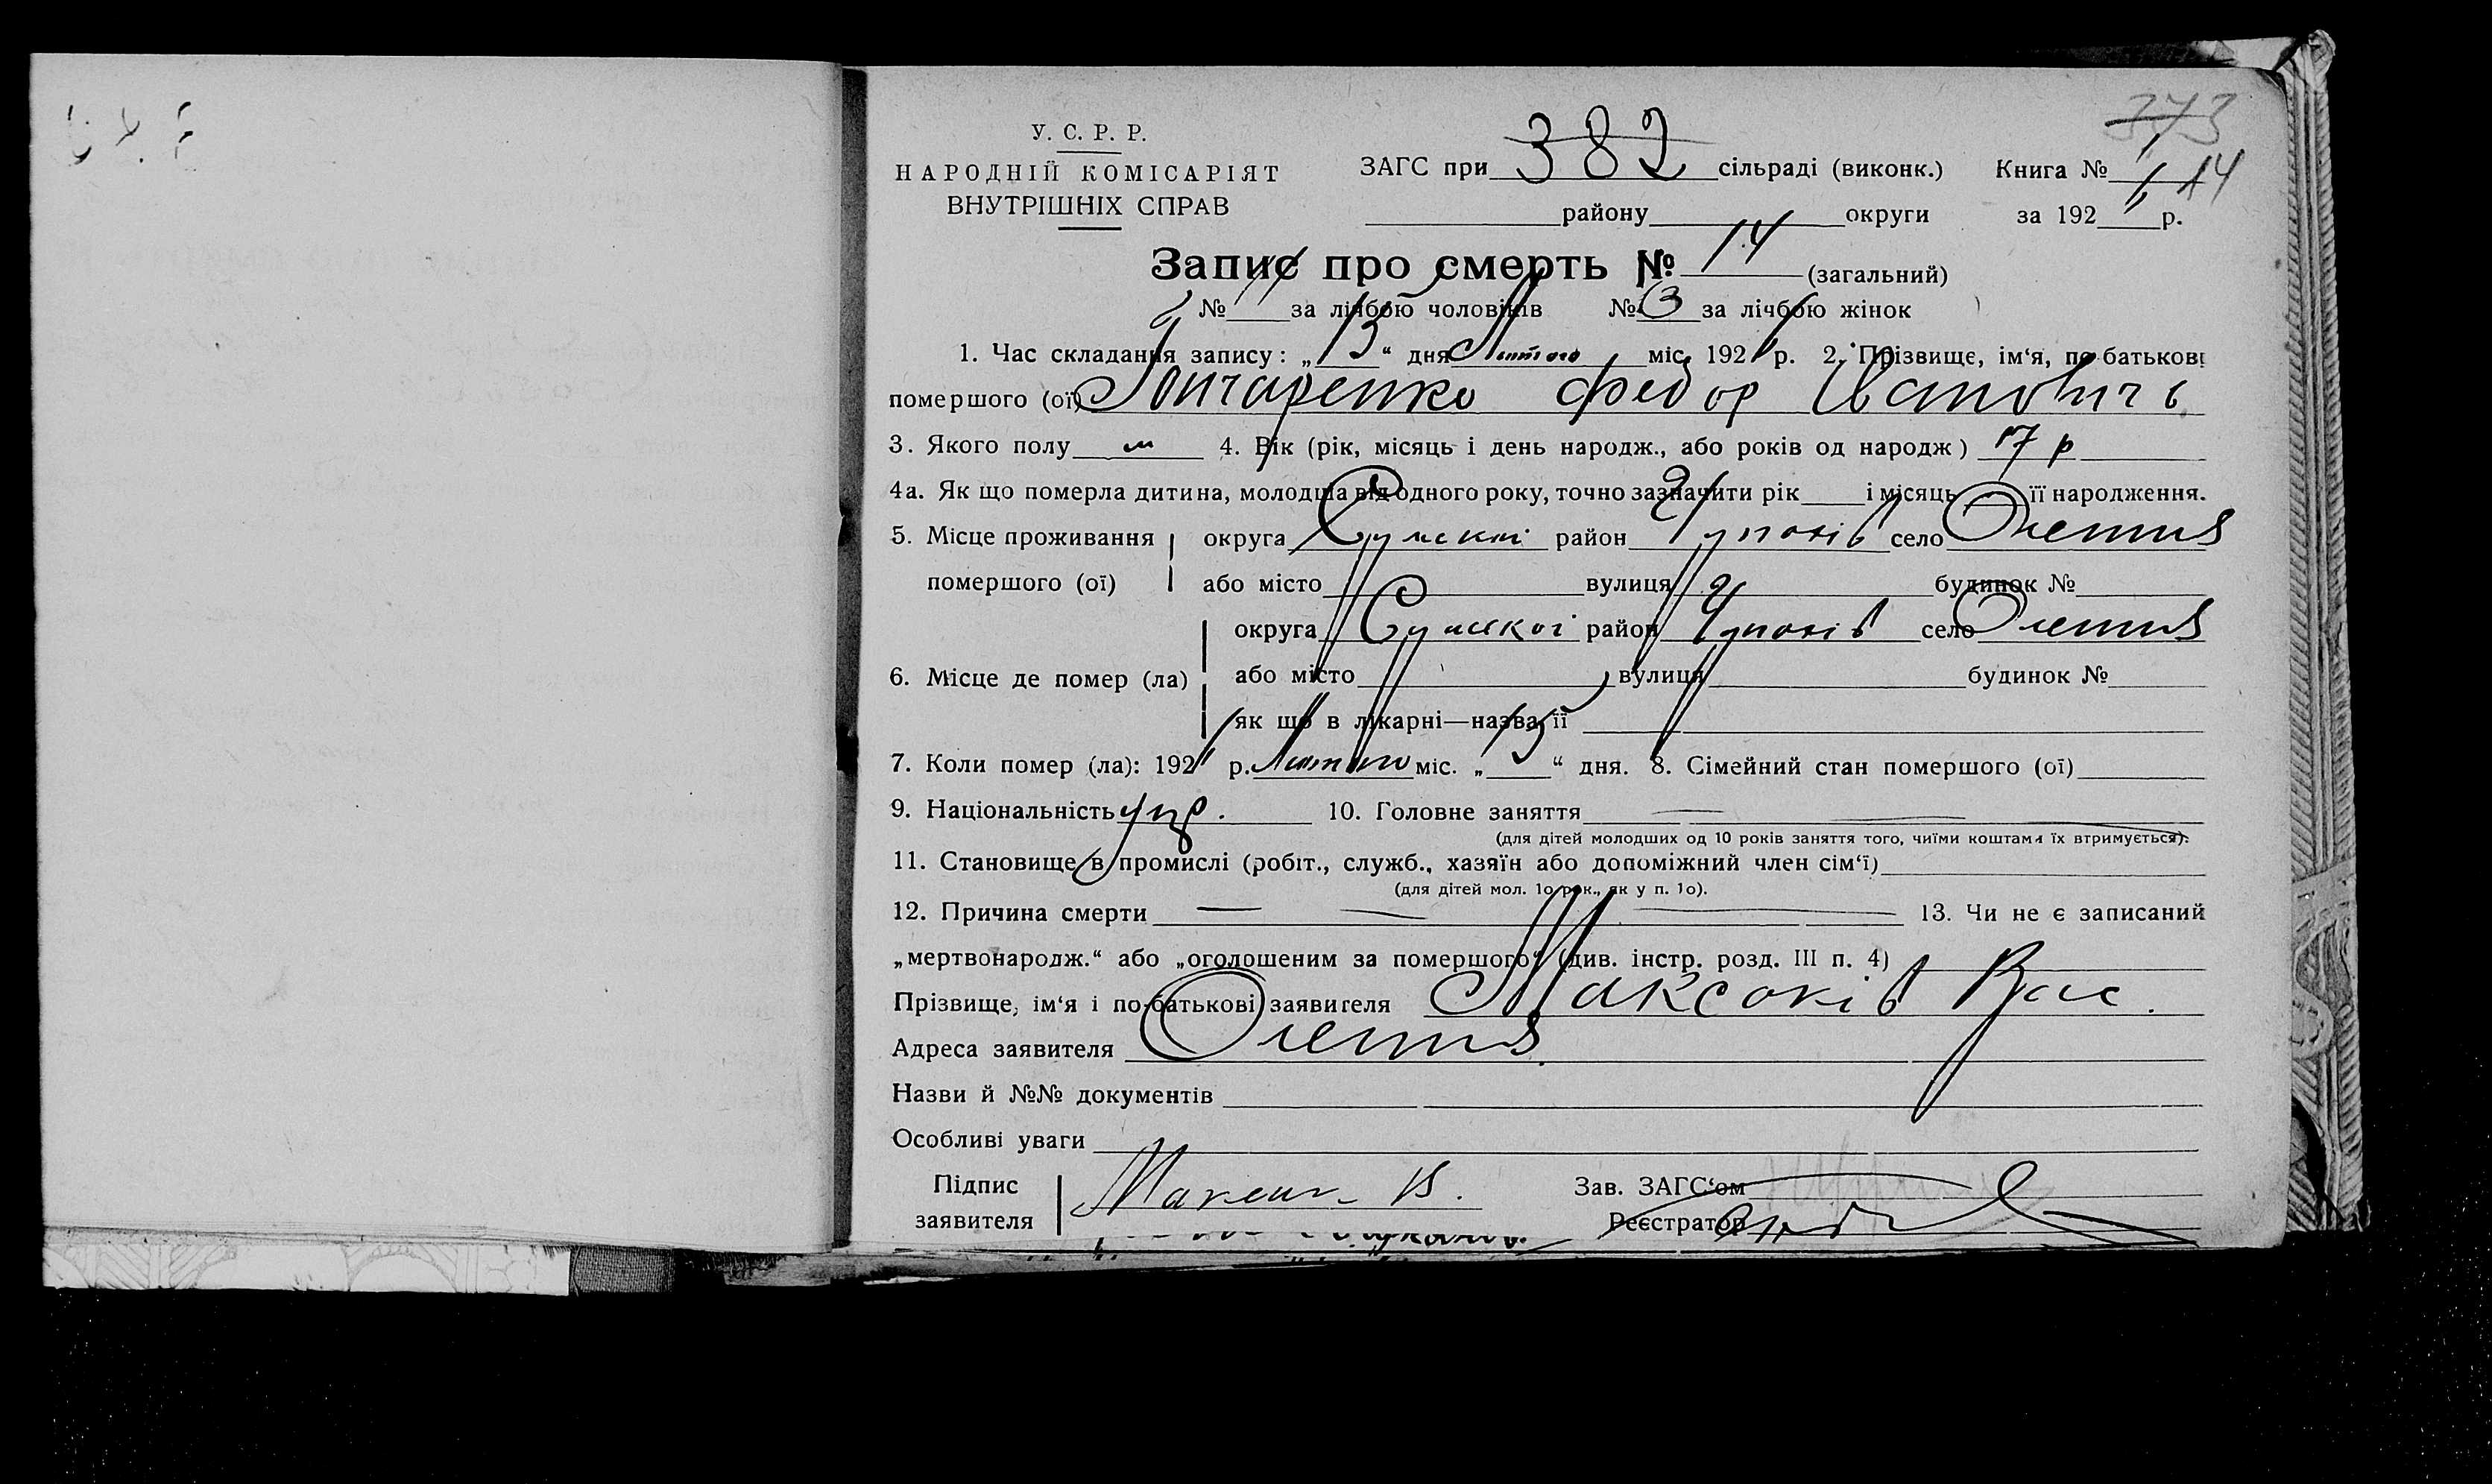 373
У. С. Р. Р.
НАРОДНІЙ КОМІСАРІЯТ
ВНУТРІШНІХ СПРАВ
ЗАГС при 382 сільраді (виконк.) Книга № 1 14
району округи за 192 р.
Запис про смерть № 14 (загальний)
№ 11 за лічбою чоловіків № 3 за лічбою жінок
1. Час складання запису: „13“ дня Лютого міс. 192 р. 2. Прізвище, ім‘я, по батькові
помершого (ої) Гончаренко Федор Ивановичь
3. Якого полу м 4. Вік (рік, місяць і день народж., або років од народж) 17 р
4а. Як що померла дитина, молодша від одного року, точно зазначити рік і місяць її народження.
5. Місце проживання округа Сумскої район село
помершого (ої) або місто вулиця будинок №
округа Сумскої район село
6. Місце де помер (ла) або місто вулиця будинок №
як що в лікарні—назва її
7. Коли помер (ла): 192 р. Лютого міс. „13“ дня. 8. Сімейний стан помершого (ої)
9. Національність укр. 10. Головне заняття
(для дітей молодших од 10 років заняття того, чиїми коштами їх втримується).
11. Становище в промислі (робіт., служб., хазяїн або допоміжний член сім‘ї)
(для дітей мол. 1о рок., як у п. 1о).
12. Причина смерти 13. Чи не є записаний
„мертвонародж.“ або „оголошеним за помершого“ (див. інстр. розд. III п. 4)
Прізвище, ім‘я і по-батькові заявителя Вас.
Адреса заявителя
Назви й №№ документів
Особливі уваги
Підпис В. Зав. ЗАГС‘ом
заявителя Реєстратор